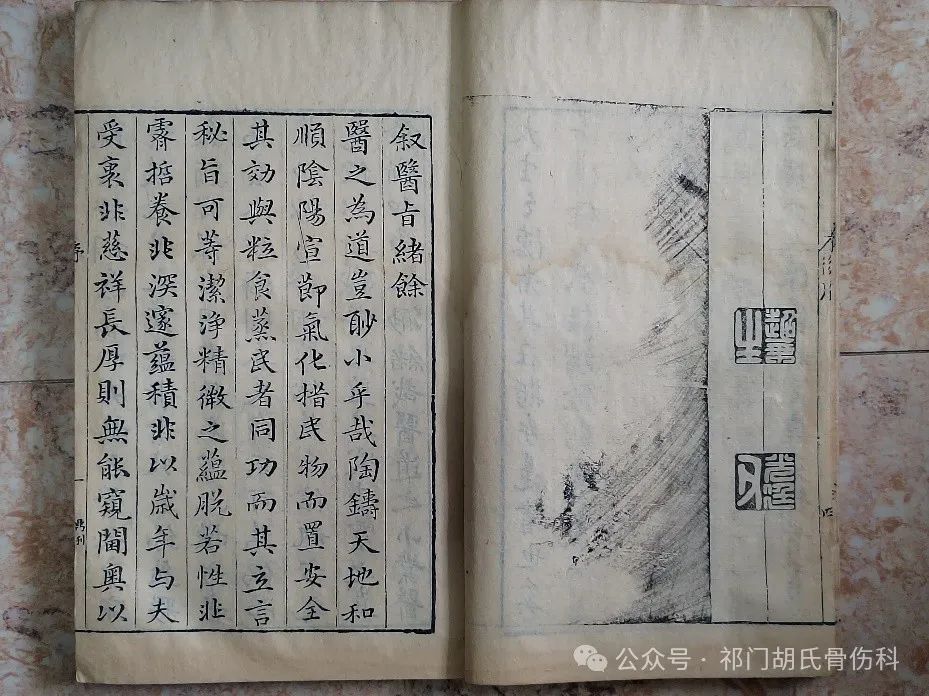 叙醫旨緒餘
醫之為道豈眇小乎哉陶鑄天地和
順陰陽宣節氣化措民物而置安全
其効與粒食蒸民者同功而其立言
秘旨可等潔淨精微之蘊脱若性非
睿哲養非深邃蘊積非以歲年与夫
受衷非慈祥長厚則無能窺閫奥以
序
一
公众号·祁门胡氏骨伤科